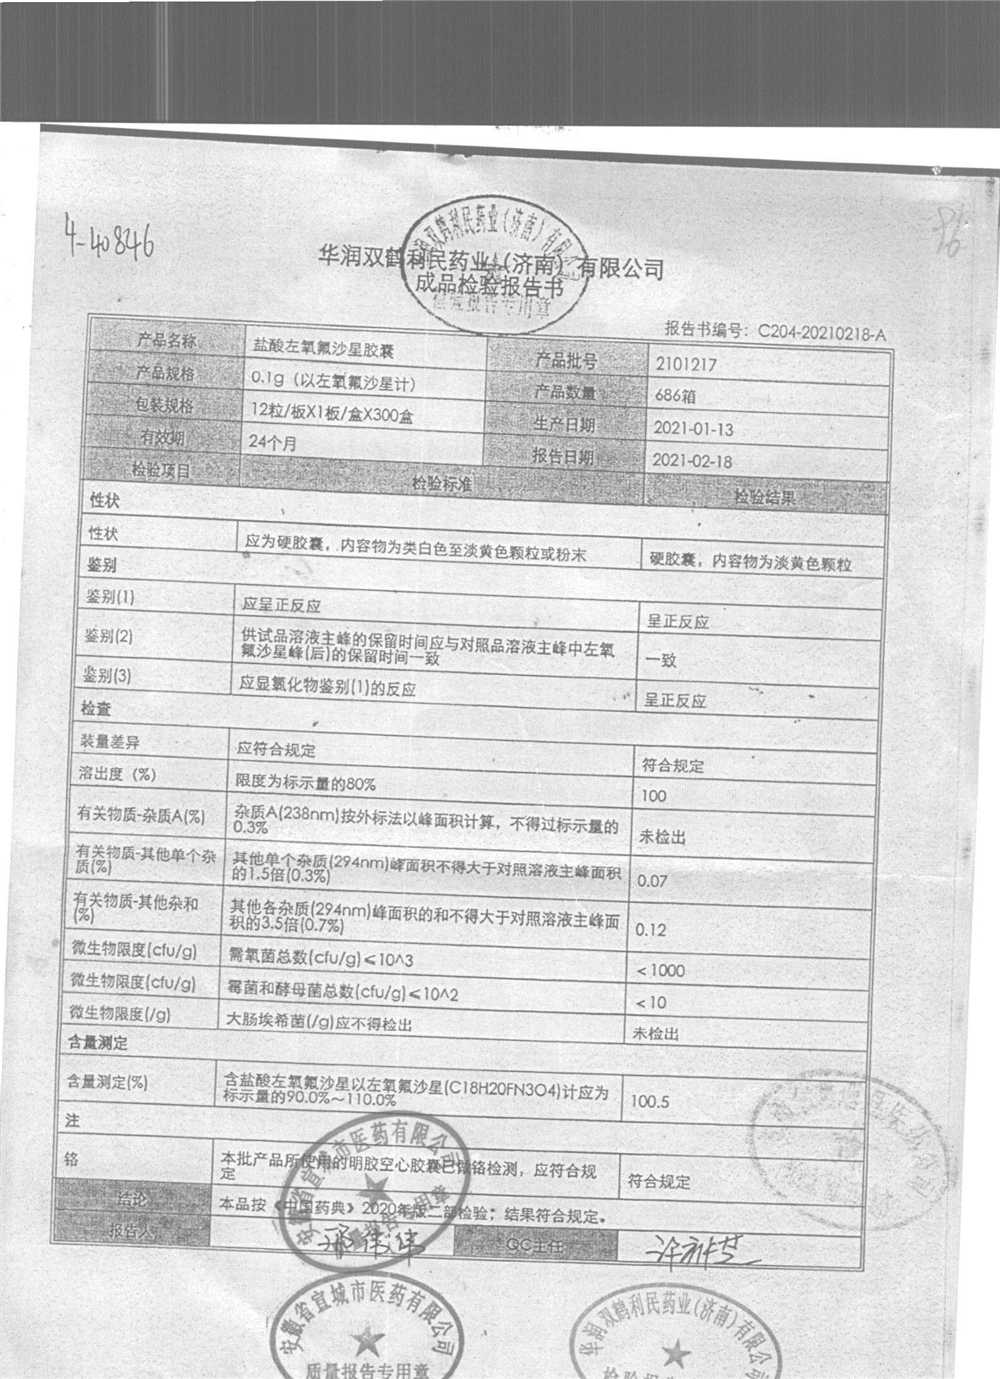 4-40846
华润双鹤利民药业(济南)有限公司
成品检验报告书
报告书编号：C204-20210218-A
产品名称 盐酸左氧氟沙星胶囊 产品批号 2101217
产品规格 0.1g（以左氧氟沙星计） 产品数量 686箱
包装规格 12粒/板X1板/盒X300盒 生产日期 2021-01-13
有效期 24个月 报告日期 2021-02-18
检验项目 检验标准 检验结果
性状
性状 应为硬胶囊，内容物为类白色至淡黄色颗粒或粉末 硬胶囊，内容物为淡黄色颗粒
鉴别
鉴别(1) 应呈正反应 呈正反应
鉴别(2) 供试品溶液主峰的保留时间应与对照品溶液主峰中左氧
氟沙星峰(后)的保留时间一致 一致
鉴别(3) 应显氯化物鉴别(1)的反应 呈正反应
检查
装量差异 应符合规定 符合规定
溶出度（%） 限度为标示量的80% 100
有关物质-杂质A(%) 杂质A(238nm)按外标法以峰面积计算，不得过标示量的
0.3% 未检出
有关物质-其他单个杂
质(%) 其他单个杂质(294nm)峰面积不得大于对照溶液主峰面积
的1.5倍(0.3%) 0.07
有关物质-其他杂和
(%) 其他各杂质(294nm)峰面积的和不得大于对照溶液主峰面
积的3.5倍(0.7%) 0.12
微生物限度(cfu/g) 需氧菌总数(cfu/g)≤10^3 <1000
微生物限度(cfu/g) 霉菌和酵母菌总数(cfu/g)≤10^2 <10
微生物限度(/g) 大肠埃希菌(/g)应不得检出 未检出
含量测定
含量测定(%) 含盐酸左氧氟沙星以左氧氟沙星(C18H20FN3O4)计应为
标示量的90.0%～110.0% 100.5
注
铬 本批产品所使用的明胶空心胶囊已做铬检测，应符合规
定 符合规定
结论 本品按《中国药典》2020年版二部检验；结果符合规定。
报告人 QC主任
安徽省宣城市医药有限公司
质量报告专用章
华润双鹤利民药业(济南)有限公司
检验报告